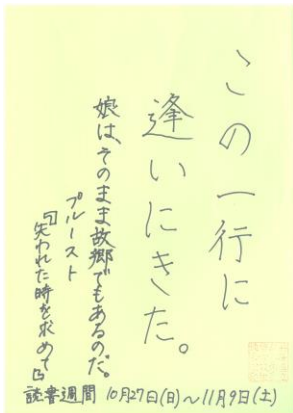 この一行に
逢いにきた。
娘は、そのまま故郷でもあるのだ。
プルースト
『失われた時を求めて』
読書週間 10月27日(日)～11月9日(土)